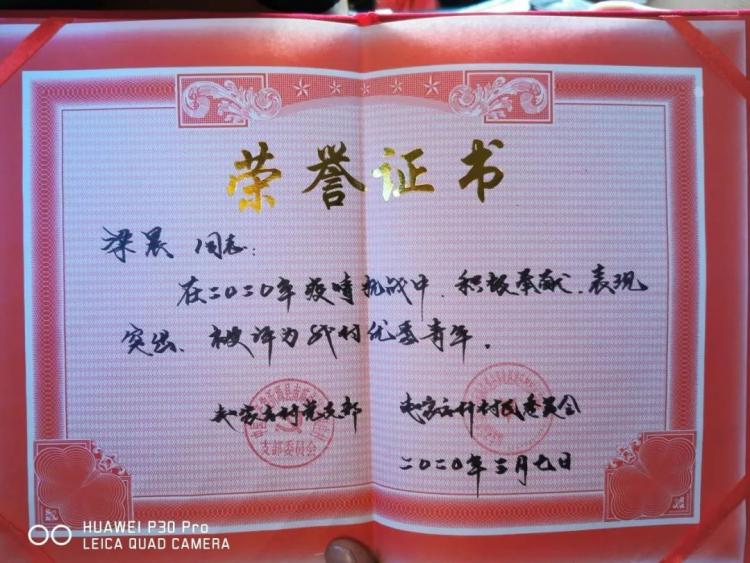 荣誉证书
梁晨 同志:
在二〇二〇年疫情抗战中、积极奉献、表现
突出、被评为我村优秀青年。
村党支部 村民委员会
支部委员会
二〇二〇年三月七日
HUAWEI P30 Pro
LEICA QUAD CAMERA